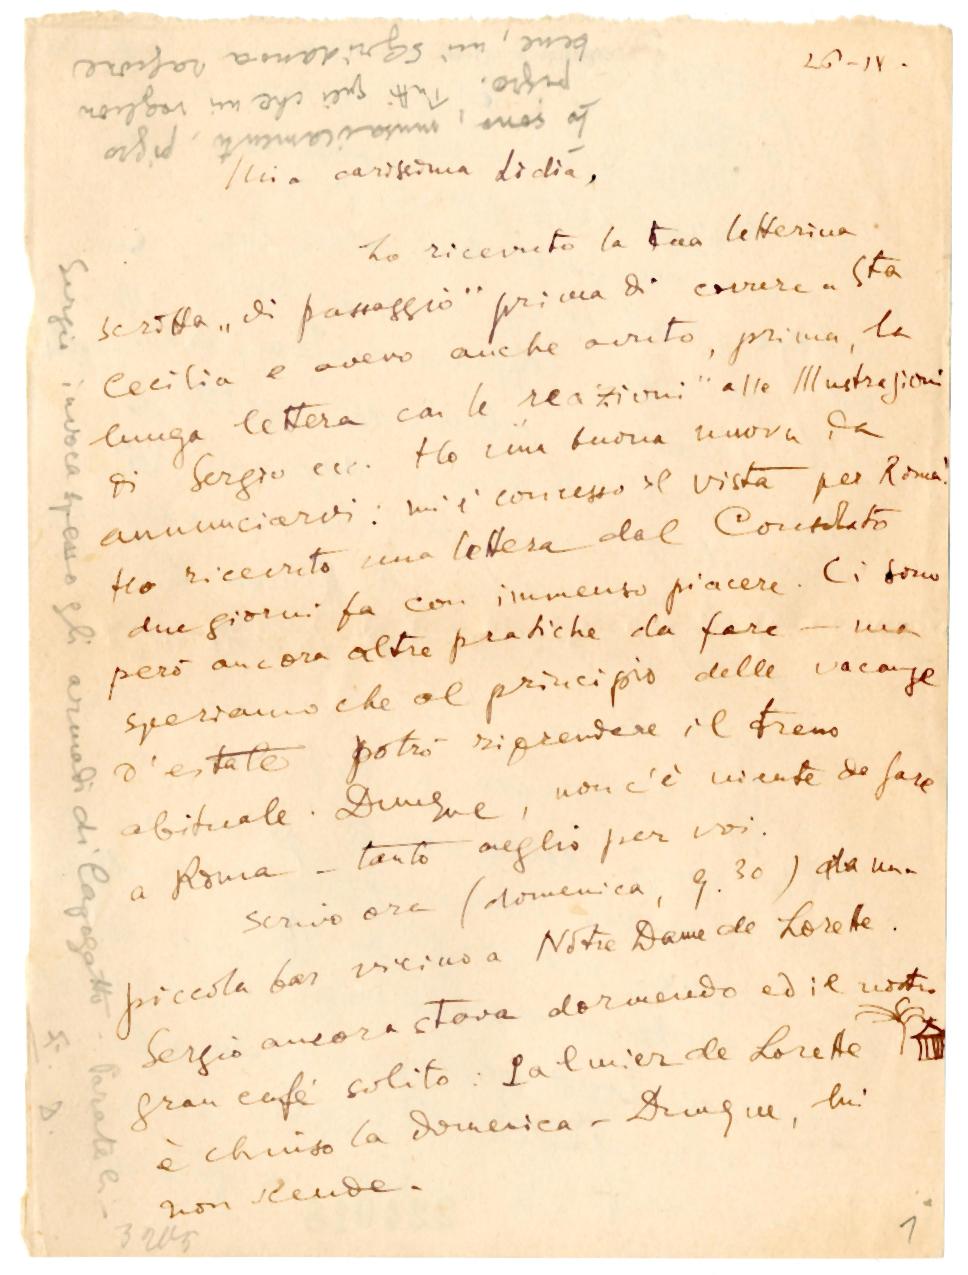 26-IV.
Mia carissima Lidia,
ho ricevuto la tua letterina
scritta „di passaggio" prima di correre a Sta
Cecilia e avevo anche avuto, prima, la
lunga lettera con le reazioni" alle Illustrazioni
di Sergio ecc. Ho una buona nuova da
annunciarvi: mi è concesso il vista per Roma!
Ho ricevuto una lettera dal Consolato
due giorni fa con immenso piacere. Ci sono
però ancora altre pratiche da fare — ma
speriamo che al principio delle vacanze
d'estate potrò riprendere il treno
abituale. Dunque, non c'è niente da fare
a Roma - tanto meglio per voi.
Scrivo ora (domenica, 9.30) da una
piccola bar vicino a Nôtre Dame de Lorette.
Sergio ancora stava dormendo ed il nostro
gran café solito: Palmier de Lorette
è chiuso la domenica - Dunque, lui
non rende.
Io sono, musicalmente, pigro
pigro. Tutti quei che mi voglion
bene, mi sgridano a ragione
Sergio invoca spesso gli armadi di Capogatto.
S. D.
3205
1